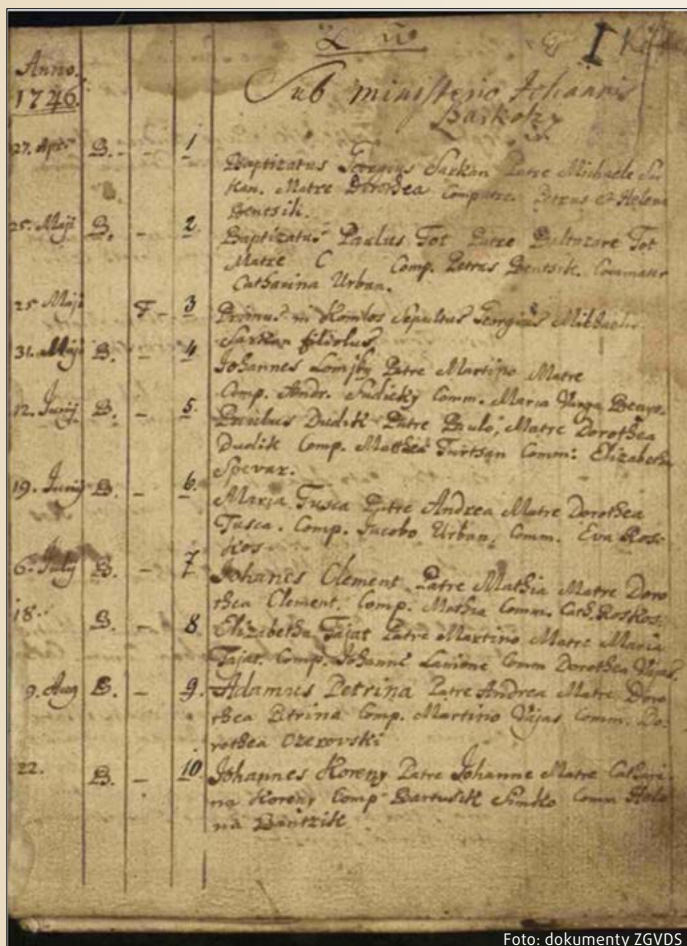 Anno.
1746.
Sub ministerio Johannis
27. Apr. B. - - 1
Baptizatus Georgius Sarkan Patre Michaele Sar
kan. Matre Dorothea Compatre. Petrus & Helena
Bentsik.
25. Maji B. - 2
Baptizatus Paulus Tot Patre Baltazare Tot
Matre C Comp. Petrus Bentsik. Commater
Catharina Urban.
25 Maji F - 3
Primus in Komlos Sepultus Georgius Michaelis
Sarkan filiolus
31. Maji B. - 4
Johannes Patre Martino Matre
Comp. Andr. Sudicky Comm. Maria Varga
12. Junij B. - 5.
Dudik Patre Paulo, Matre Dorothea
Dudik Comp. Mathia Comm: Elizabetha
Spevar.
19. Junij B. - 6.
Maria Tusca Patre Andrea Matre Dorothea
Tusca. Comp. Jacobo Urban, Comm. Eva Ros-
kos.
6. July B. - 7
Johanes Clement Patre Mathia Matre Doro
thea Clement. Comp. Mathia Comm. Cath. Roskos.
18. B. - 8
Elizabetha Fajat Patre Martino Matre Maria
Fajat. Comp. Johanne Comm Dorothea Vajas.
9. Aug B. - 9.
Adamus Petrina Patre Andrea Matre Doro
thea Petrina Comp. Martino Vajas Comm. Do-
rothea Ozerovski
22. B. - 10
Johannes Koreny Patre Johanne Matre Cathari
na Koreny Comp Bartusik Simko Comm Hele
na Bantzik
Foto: dokumenty ZGVDS